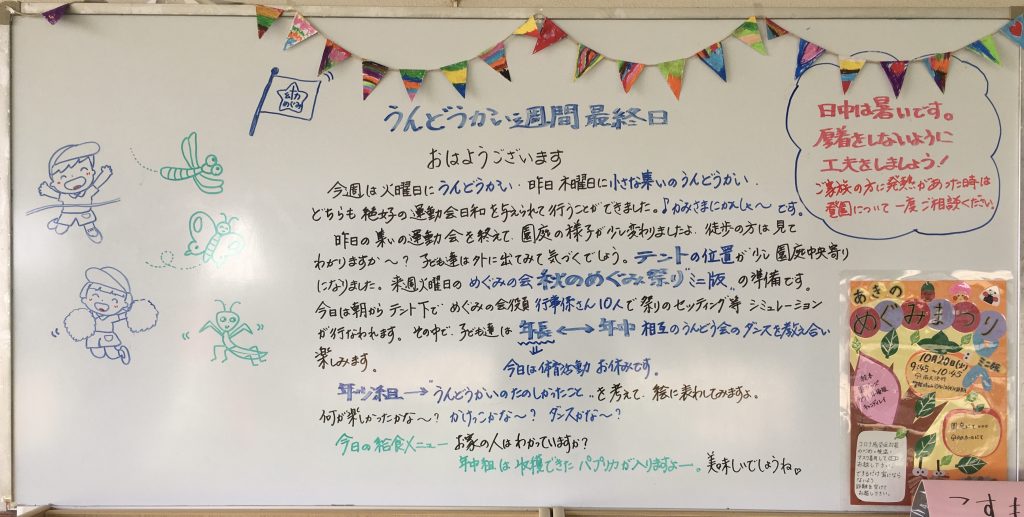 めぐみ
うんどうかい週間最終日
おはようございます
今週は火曜日にうんどうかい、昨日木曜日に小さな集いのうんどうかい、
どちらも絶好の運動会日和を与えられて行うことができました。♪かみさまにかんしゃ〜です。
昨日の集いの運動会を終えて、園庭の様子が少し変わりましたよ、徒歩の方は見て
わかりますか〜？子ども達は外に出てみて気づくでしょう。テントの位置が少し園庭中央寄り
になりました。来週火曜日のめぐみの会秋のめぐみ祭り ミニ版〃の準備です。
今日は朝からテント下でめぐみの会役員 行事係さん10人で祭りのセッティング等シミュレーション
が行なわれます。その中で、子ども達は年長⟷年中 相互のうんどう会のダンスを教え合い
楽しみます。
今日は体育活動お休みです。
年少組→うんどうかいのたのしかったこと..を考えて、絵に表わしてみますよ。
何が楽しかったかな〜？かけっこかな〜？ダンスかな〜？
今日の給食メニュー お家の人はわかっていますか？
年中組は収穫できたパプリカが入りますよー。美味しいでしょうね♡
日中は暑いです。
厚着をしないように
工夫をしましょう！
ご家族の方に発熱があった時は
登園について一度ご相談ください。
あきの
めぐみまつり
ミニ版
10月20日(火)
9:45〜10:45